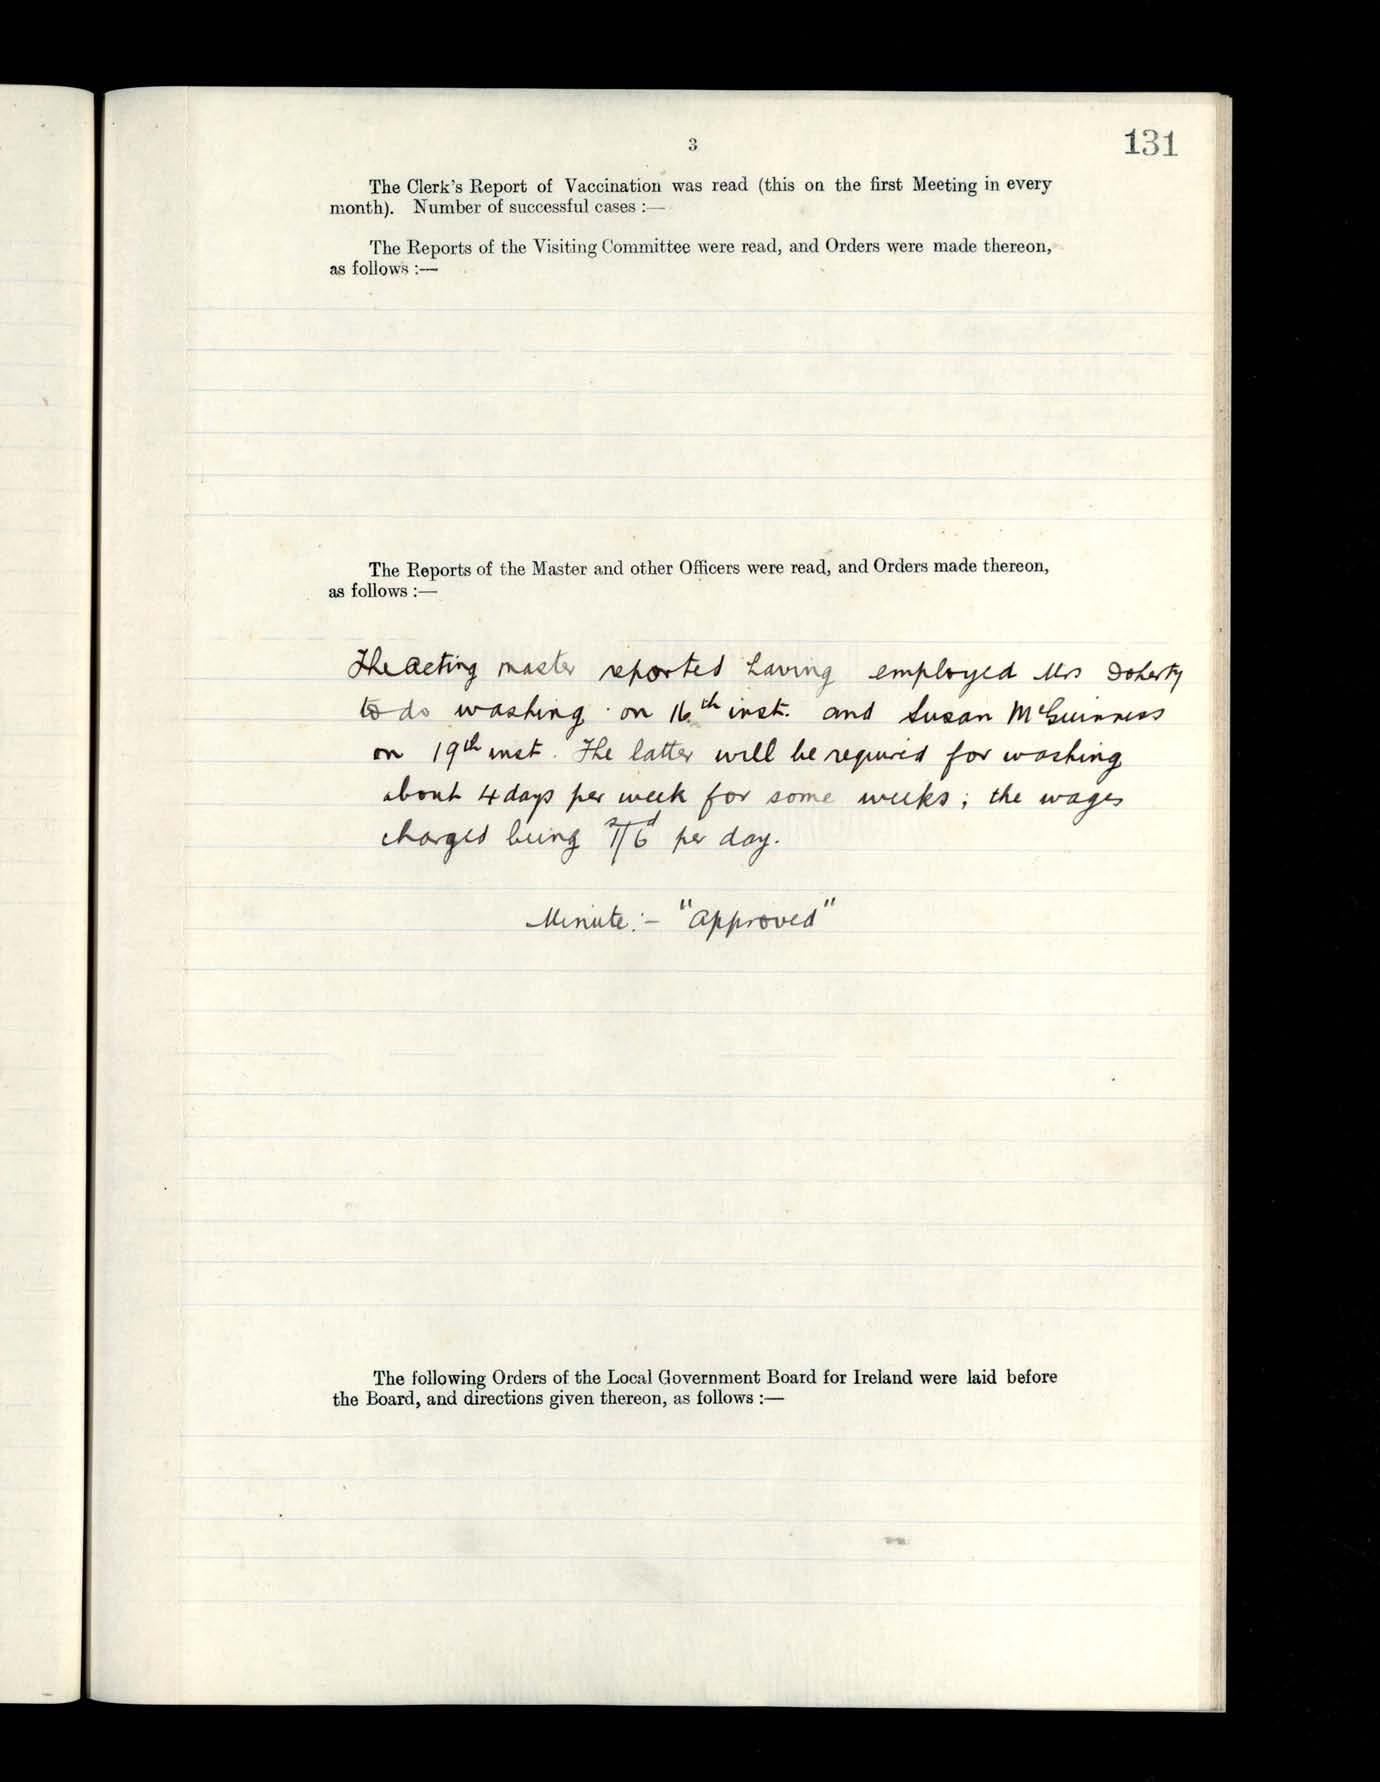 3
131
The Clerk's Report of Vaccination was read (this on the first Meeting in every
month). Number of successful cases :—
The Reports of the Visiting Committee were read, and Orders were made thereon,
as follows :—
The Reports of the Master and other Officers were read, and Orders made thereon,
as follows :—
The Acting master reported having employed Mrs Doherty
to do washing on 16th inst. and Susan McGuinness
on 19th inst. The latter will be required for washing
about 4 days per week for some weeks; the wages
charged being per day.
Minute:- "Approved"
The following Orders of the Local Government Board for Ireland were laid before
the Board, and directions given thereon, as follows :—